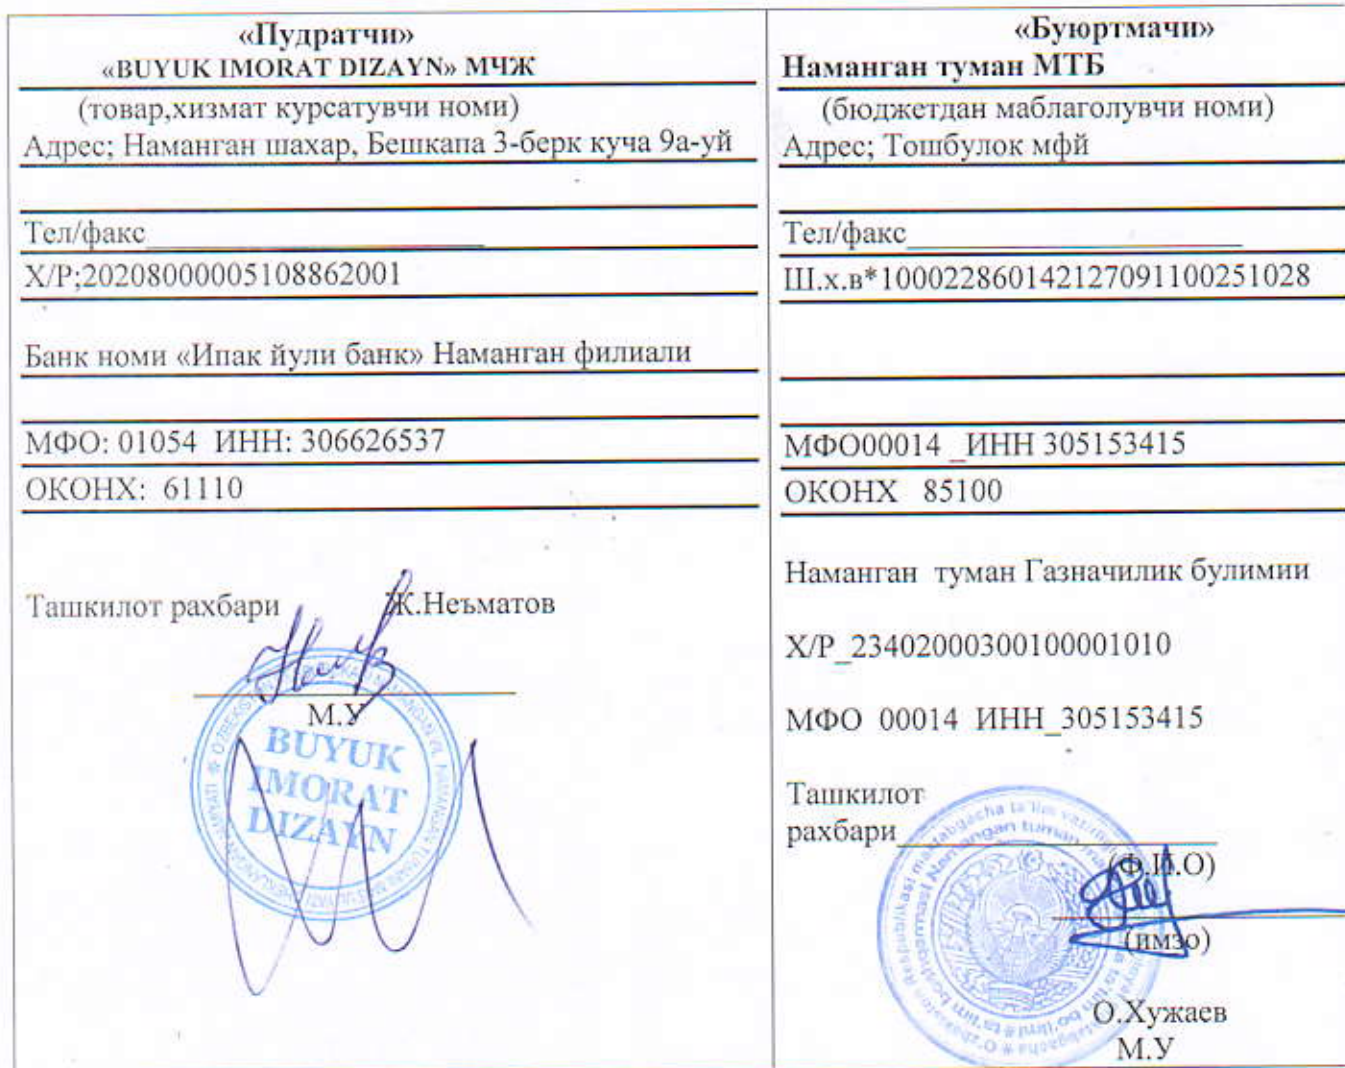 «Пудратчи»
«BUYUK IMORAT DIZAYN» МЧЖ
(товар,хизмат курсатувчи номи)
Адрес; Наманган шахар, Бешкапа 3-берк куча 9а-уй
Тел/факс
Х/Р;20208000005108862001
Банк номи «Ипак йули банк» Наманган филиали
МФО: 01054 ИНН: 306626537
ОКОНХ: 61110
Ташкилот рахбари Ж.Неъматов
М.У
BUYUK
IMORAT
DIZAYN
«Буюртмачи»
Наманган туман МТБ
(бюджетдан маблаголувчи номи)
Адрес; Тошбулок мфй
Тел/факс
Ш.х.в*100022860142127091100251028
МФО00014 _ИНН 305153415
ОКОНХ 85100
Наманган туман Газначилик булимии
Х/Р_23402000300100001010
МФО 00014 ИНН_305153415
Ташкилот
рахбари
(Ф.И.О)
(имзо)
О.Хужаев
М.У